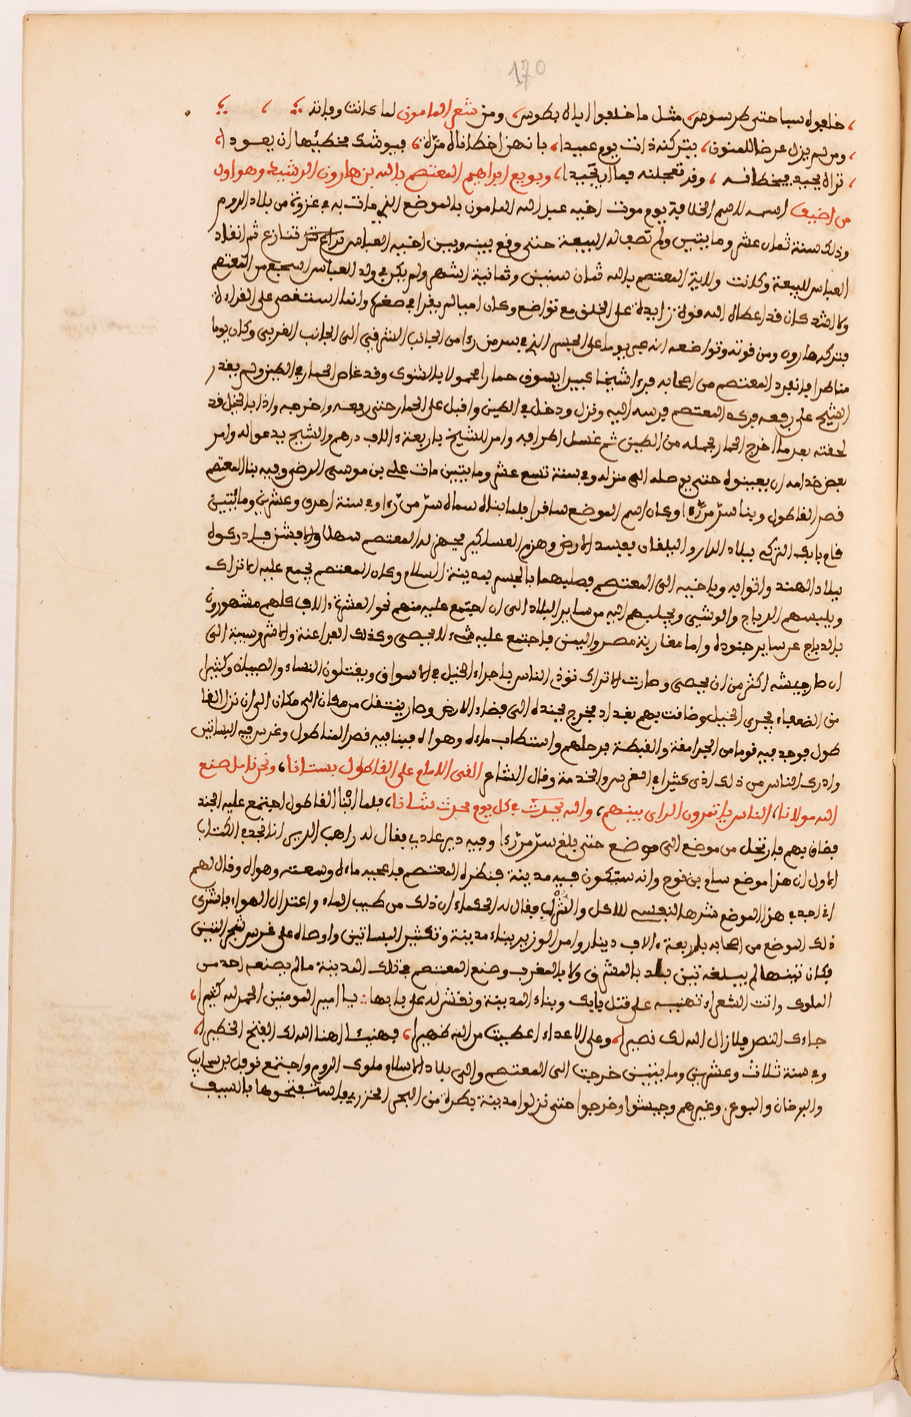 170
خلفوه سبا حتى طرسوس، مثل ما خلفوا اباه بطوس، ومن شعر المامون لما كانت وفاته
ومن لم يزل عرضا للمنون، يتركنه ذات يوم عميدا، بان هن اخطانه مرة، فيوشك مخطيها ان يعودا،
تراه يحيد فيخطانه، وقد تعجلنه فيما ان يحيدا، وبويع ابراهيم المعتصم بالله بن هارون الرشيد وهو اول
من اضيف اسمه لاسم الخلافة يوم موت اخيه عبد الله المامون بالموضع الذي مات به في غزوته من بلاد الروم
وذلك سنة ثمان عشر ومايتين ولم تصف له البيعة حتى وقع بينه وبين اخيه العباس تنازع ثم انقاد
العباس للبيعة وكانت ولاية المعتصم بالله ثمان سنين وثمانية اشهر ولم يكن في ولد العباس اشجع من المعتصم
ولا اشد كان قد اعطاه الله قوة زايدة على الخلق مع تواضع وكان اميا لم يقرا في صغره وانما استعصى على القراءة
فتركه هارون ومن قوته وتواضعه انه عبر يوما على الجسر الذي في سر من را من الجانب الشرقي الى الجانب الغربي وكان يوما
ماطرا فانفرد المعتصم من اصحابه فرءا شيخا كبيرا يسوق حمارا محمولا بالشوك وقد غاص الحمار في الطين ولم يقدر
الشيخ على رفعه فحرك المعتصم فرسه اليه ونزل ودخل في الطين واقبل على الحمار حتى رفعه واخرجه واذا بالخيل قد
لحقته بعد ما اخرج الحمار بحمله من الطين ثم غسل اطرافه وامر للشيخ باربعة ءالاف درهم والشيخ يدعو له وامر
بعض خدامه ان يعينوه حتى يوصله الى منزله وفي سنة تسع عشر ومايتين مات علي بن موسى الرضى وفيه بنا المعتصم
قصر القاطول وبنا سر من رءا وكان اسم الموضع سافرا فلما بناه سماه سر من رءا وفي سنة احدى وعشرين ومايتين
قام بابك التركي ببلاد الران والبلقان يفسد الارض وهزم العساكر فجهز له المعتصم سهلا والافشين فادركوه
ببلاد الهند واتوا به وباخيه الى المعتصم فصلبهما بالجسر بمدينة السلام وكان المعتصم يجمع عليه الاتراك
ويلبسهم الديباج والوشي ويجلبهم اليه من ساير البلاد الى ان اجتمع عليه منهم نحو العشرة ءالاف كلهم مشهورون
بالديباج عن ساير جنوده واما مغاربة مصر واليمن فاجتمع عليه شيء لا يحصى وكذلك الفراعنة والاشروسية الى
ان صار جيشه اكثر من ان يحصى وصارت الاتراك توذي الناس باجراء الخيل في الاسواق ويقتلون النساء والصبيان وكثيرا
من الضعفاء بجري الخيل وضاقت بهم بغداد فخرج بجنده الى فضاء الارض وصار ينتقل من مكان الى مكان الى ان نزل القا
طول فوجد فيه قوما من الجرامقة والقبطة فرحلهم واستطاب ماءه وهواه فبنا فيه قصر القاطول وغرس فيه البساتين
وادرك الناس من ذلك اذى كثيرا في الغرس والخدمة وقال الشاعر القى الامام على القاطول بستانا، ونحن نامل صنع
الله مولانا، الناس ياتمرون الراي بينهم، والله يحدث في كل يوم يحدث شانا، فلما ابنا القاطول اجتمع عليه الجند
فضاق بهم فارتحل من موضع الى موضع حتى بلغ سر من رءا وفيه دير عادي فقال له راهب الدير انا نجد في الكتاب
الاول ان هذا موضع سام بن نوح وانه ستكون فيه مدينة فنظره المعتصم فاعجبه ماءه وسعته وهواه وقال لهم
اني اجد في هذا الموضع شرها لنفسي للاكل والشرب فقال له الحكماء ان ذلك من طيب الماء واعتدال الهواء فاشترى
ذلك الموضع من اصحابه باربعة ءالاف دينار وامر الوزير ببناء مدينة وتكثير البساتين واوصاه على غرس شجر التين
فكان تينها لم يبلغه تين بلد بالمشرق ولا بالمغرب وصنع المعتصم في تلك المدينة ما لم يصنعه احد من
الملوك واتت الشعراء تهنيه على قتل بابك وبناء المدينة ونقش له على بابها: يا امير المومنين الحمد لله كثيرا،
جاءك النصر فلا زال الله لك نصيرا، وعلى الاعداء اعطيت من الله ظهيرا، فهنيئا هنا الله لك الفتح الخطيرا،
وفي سنة ثلاث وعشرين ومايتين خرجت الى المعتصم والى بلاد الاسلام ملوك الروم واجتمع نوفيل
والبرخان والبوغر وغيرهم وجيشوا وخرجوا حتى نزلوا مدينة بطرة من البحر الخزري فاستفتحوها بالسيف